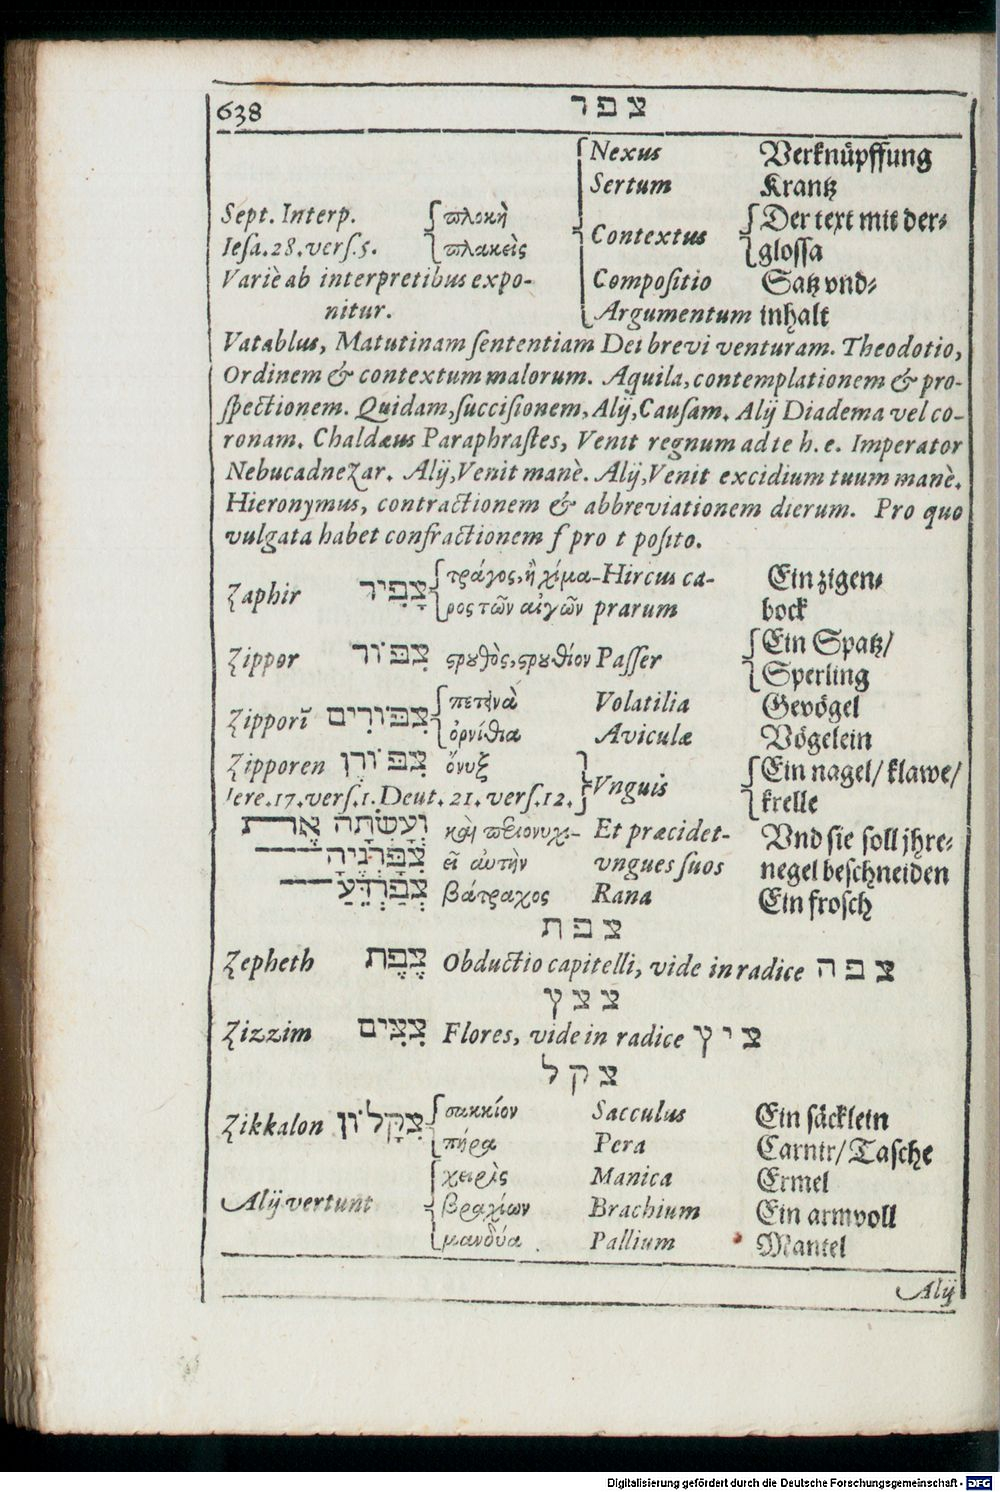 638 צפר
Nexus Verknüpffung
Sertum Krantz
Sept. Interp. πλοκὴ Contextus Der text mit der-
Iesa.28.vers.5. πλακεὶς glossa
Variè ab interpretibus expo- Compositio Satz vnd-
nitur. Argumentum inhalt
Vatablus, Matutinam sententiam Dei brevi venturam. Theodotio,
Ordinem & contextum malorum. Aquila, contemplationem & pro-
spectionem. Quidam, succisionem, Alij, Causam. Alij Diadema vel co-
ronam. Chaldæus Paraphrastes, Venit regnum ad te h. e. Imperator
Nebucadnezar. Alij, Venit manè. Alij, Venit excidium tuum manè.
Hieronymus, contractionem & abbreviationem dierum. Pro quo
vulgata habet confractionem f pro t posito.
Zaphir צָפִיר τράγος, ἢ χίμα- Hircus ca- Ein zigen-
ρος τῶν αἰγῶν prarum bock
Zippor צִפּוֹר ςρουθὸς, ςρουθίον Passer Ein Spatz/
Sperling
Zipporī צִפּוֹרִים πετεινὰ Volatilia Gevögel
ὀρνίθια Aviculæ Vögelein
Zipporen צִפּוֹרֶן ὄνυξ Vnguis Ein nagel/ klawe/
Iere.17.vers.1. Deut. 21. vers.12. krelle
וְעָשְׂתָה אֶת καὶ περιονυχι- Et præcidet- Vnd sie soll jhre-
צִפָּרְנֶיהָ εῖ αὐτὴν vngues suos negel beschneiden
צְפַרְדֵּעַ βάτραχος Rana Ein frosch
צפת
Zepheth צֶפֶת Obductio capitelli, vide in radice צפה
צצץ
Zizzim צִצִּים Flores, vide in radice ציץ
צקל
Zikkalon צִקָּלוֹן σακκίον Sacculus Ein säcklein
πήρα Pera Carnir/ Tasche
χειρὶς Manica Ermel
Alij vertunt βραχίων Brachium Ein armvoll
μανδύα Pallium Mantel
Alij
Digitalisierung gefördert durch die Deutsche Forschungsgemeinschaft - DFG